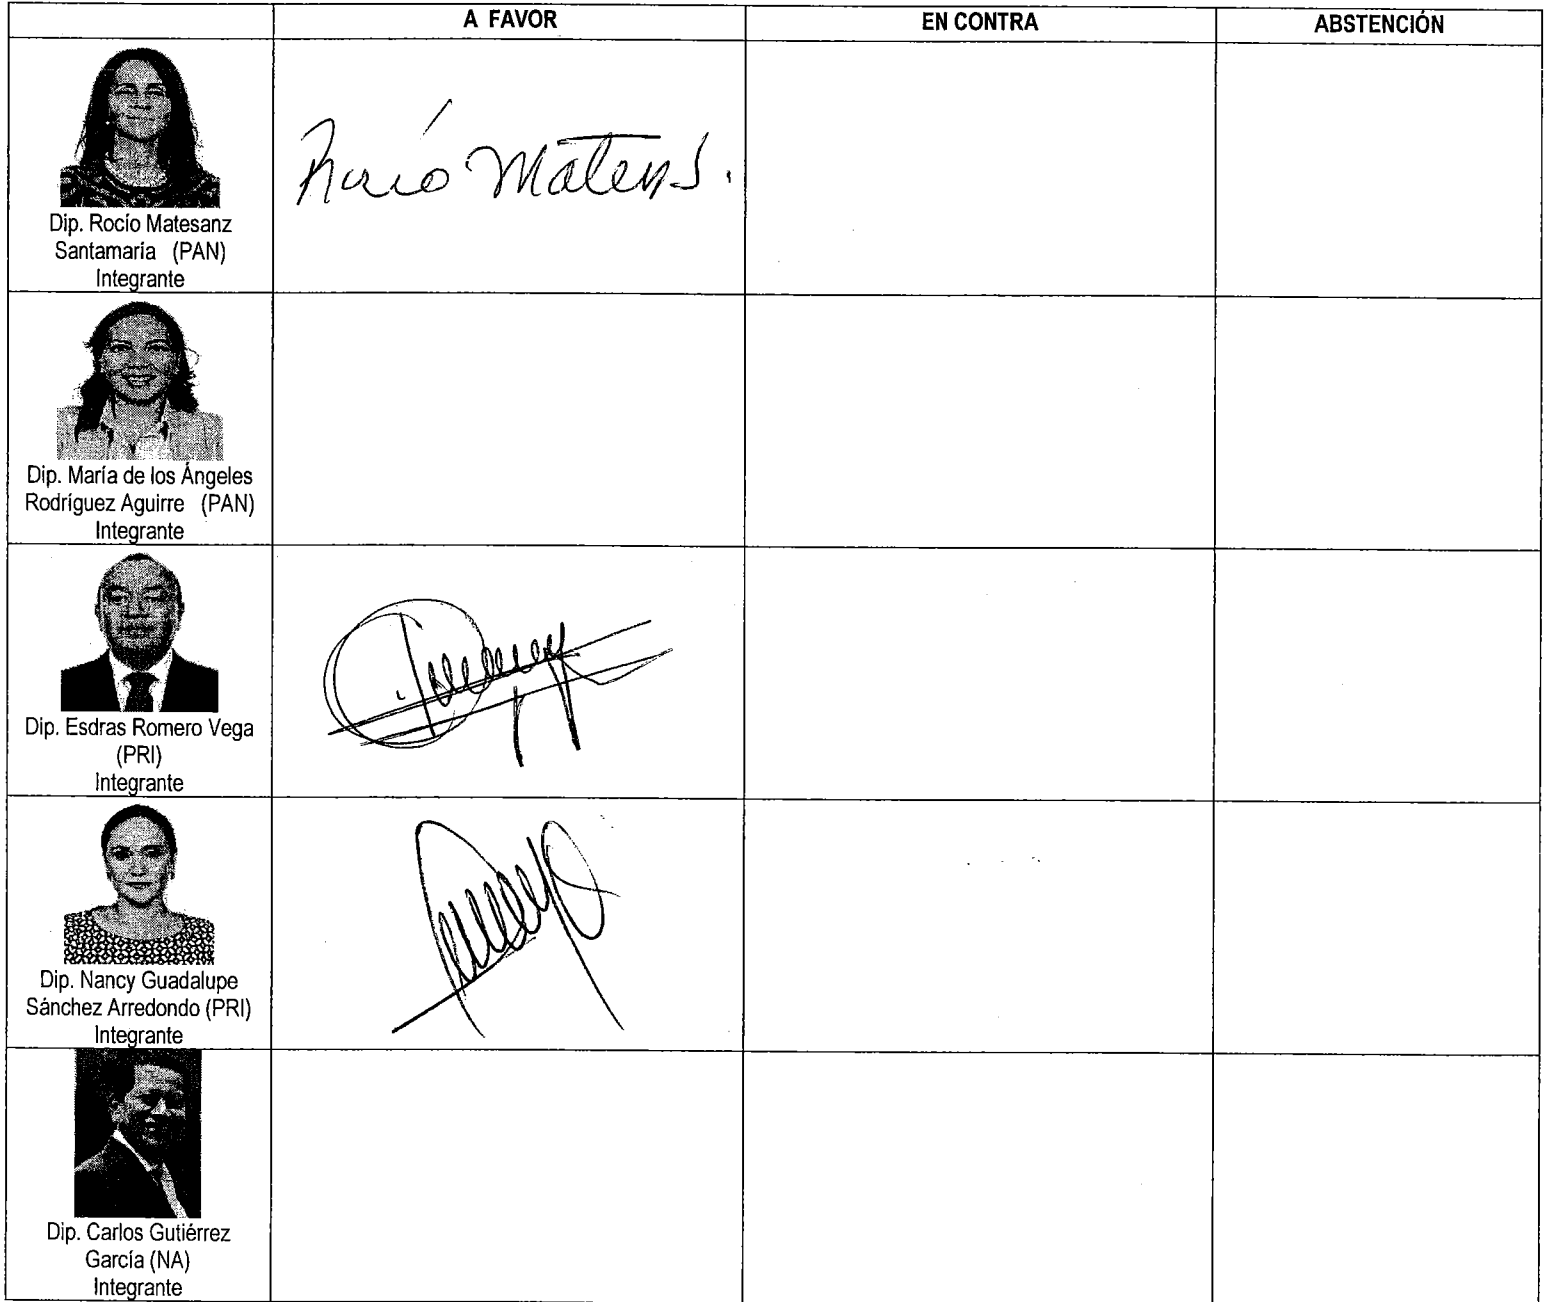 A FAVOR
EN CONTRA
ABSTENCIÓN
Rocío Matens.
Dip. Rocío Matesanz
Santamaría (PAN)
Integrante
Dip. María de los Ángeles
Rodríguez Aguirre (PAN)
Integrante
Dip. Esdras Romero Vega
(PRI)
Integrante
Dip. Nancy Guadalupe
Sánchez Arredondo (PRI)
Integrante
Dip. Carlos Gutiérrez
García (NA)
Integrante